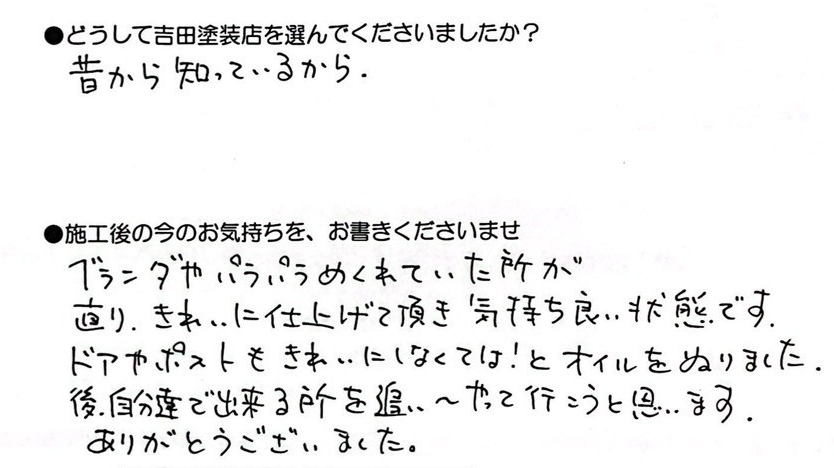 ●どうして吉田塗装店を選んでくださいましたか？
昔から知っているから.
●施工後の今のお気持ちを、お書きくださいませ
ブランダやパラパラめくれていた所が
直り、きれいに仕上げて頂き気持ち良い状態です.
ドアやポストもきれいにしなくては!とオイルをぬりました.
後、自分達で出来る所を追い〜やって行こうと思います.
ありがとうございました。